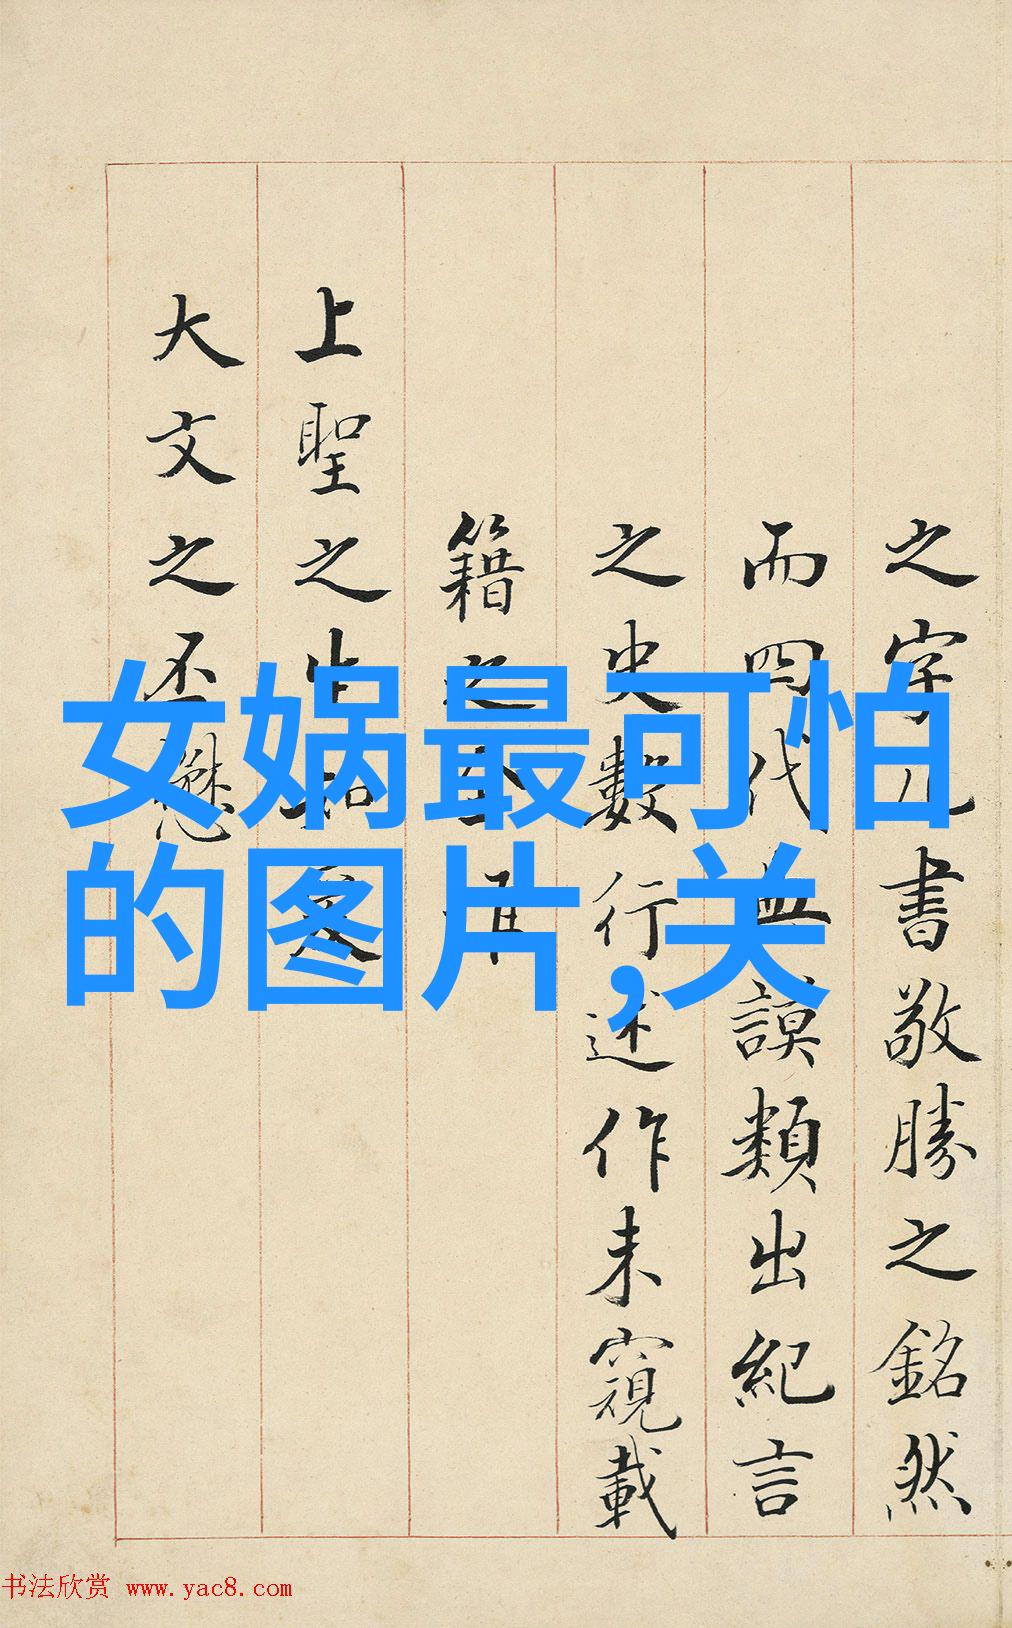 女娲最可怕
的图片,关
之字書敬勝之銘然
而四代典謨類出紀言
之史數行述作未窺載
籍之全
上聖之生知
大文之丕懋
书法欣赏 www.yac8.com